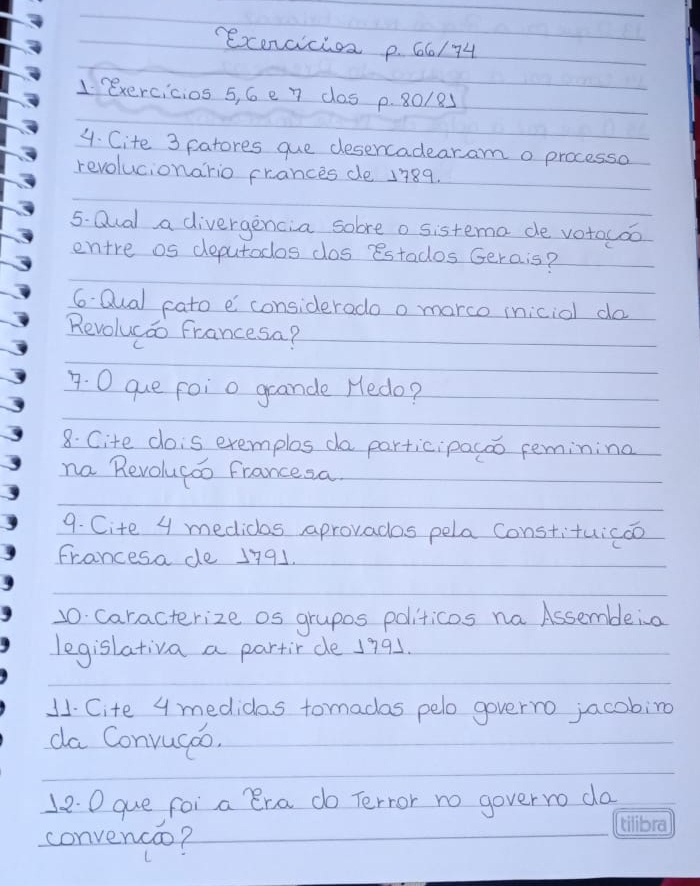 Exercícios p. 66/74
1. Exercícios 5, 6 e 7 das p. 80/81
4. Cite 3 fatores que desencadearam o processo
revolucionário francês de 1789.
5. Qual a divergência sobre o sistema de votação
entre os deputados dos Estados Gerais?
6. Qual fato é considerado o marco inicial da
Revolução Francesa?
7. O que foi o grande Medo?
8. Cite dois exemplos da participação feminina
na Revolução Francesa.
9. Cite 4 medidas aprovadas pela Constituição
Francesa de 1791.
10. Caracterize os grupos políticos na Assembleia
legislativa a partir de 1791.
11. Cite 4 medidas tomadas pelo governo jacobino
da Convução.
12. O que foi a Era do Terror no governo da
convenção?
tilibra